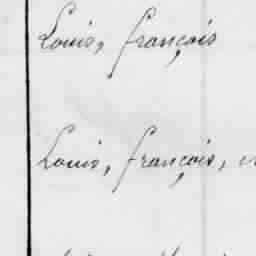 Louis, françois
Louis, françois,